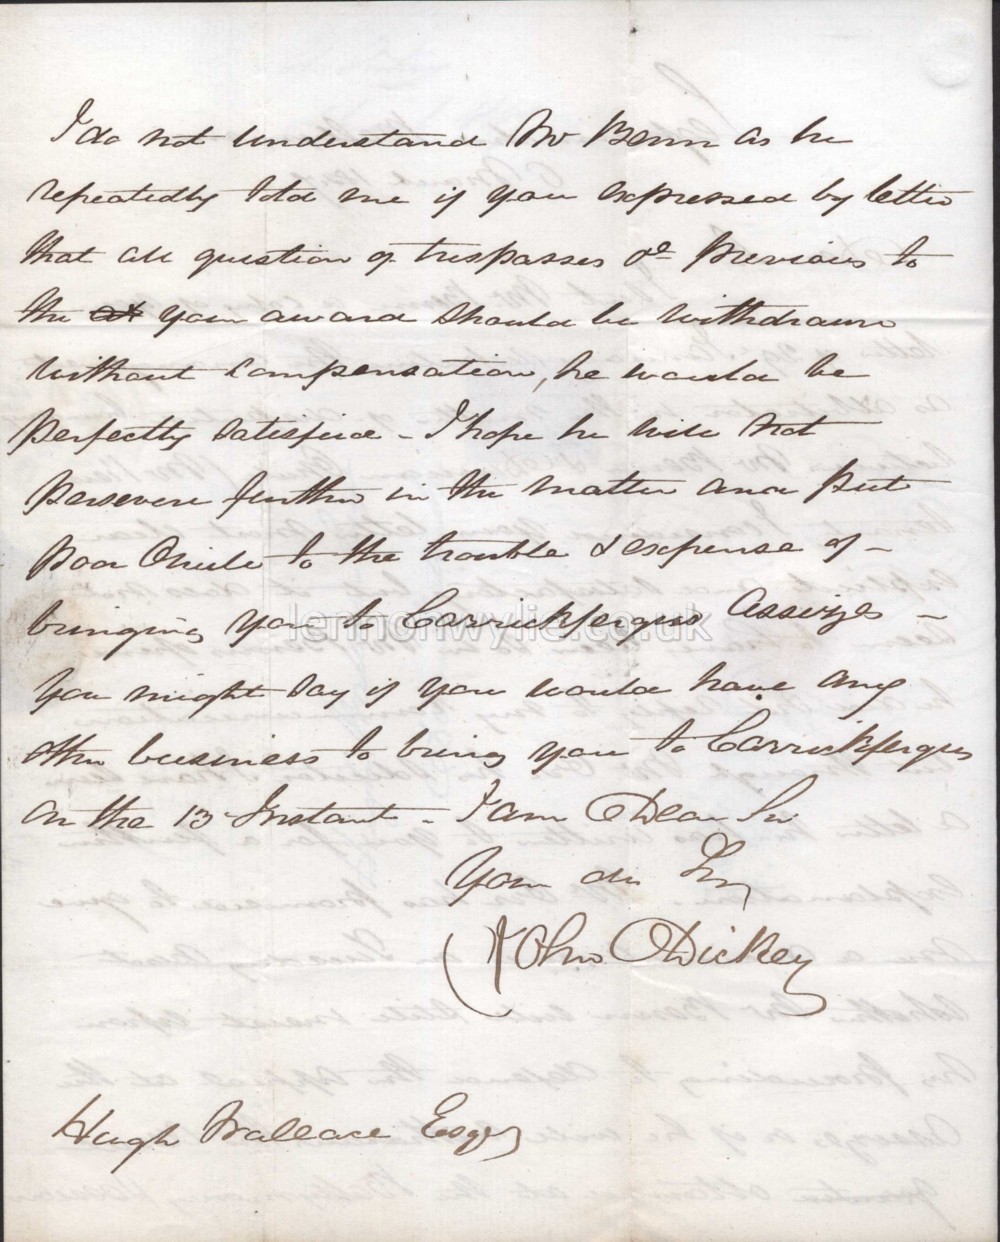 I do not understand Mr Benn as he
repeatedly told me if you expressed by letter
that all question of trespasses &c previous to
the your award should be withdrawn
without compensation, he would be
perfectly satisfied - I hope he will not
persevere further in the matter and put
poor to the trouble & expense of -
bringing you to Carrickfergus Assizes -
You might say if you would have any
other business to bring you to Carrickfergus
on the 13 Instant - I am Dear Sir
Your
John Dickey
Hugh Wallace Esqr
lennonwylie.co.uk